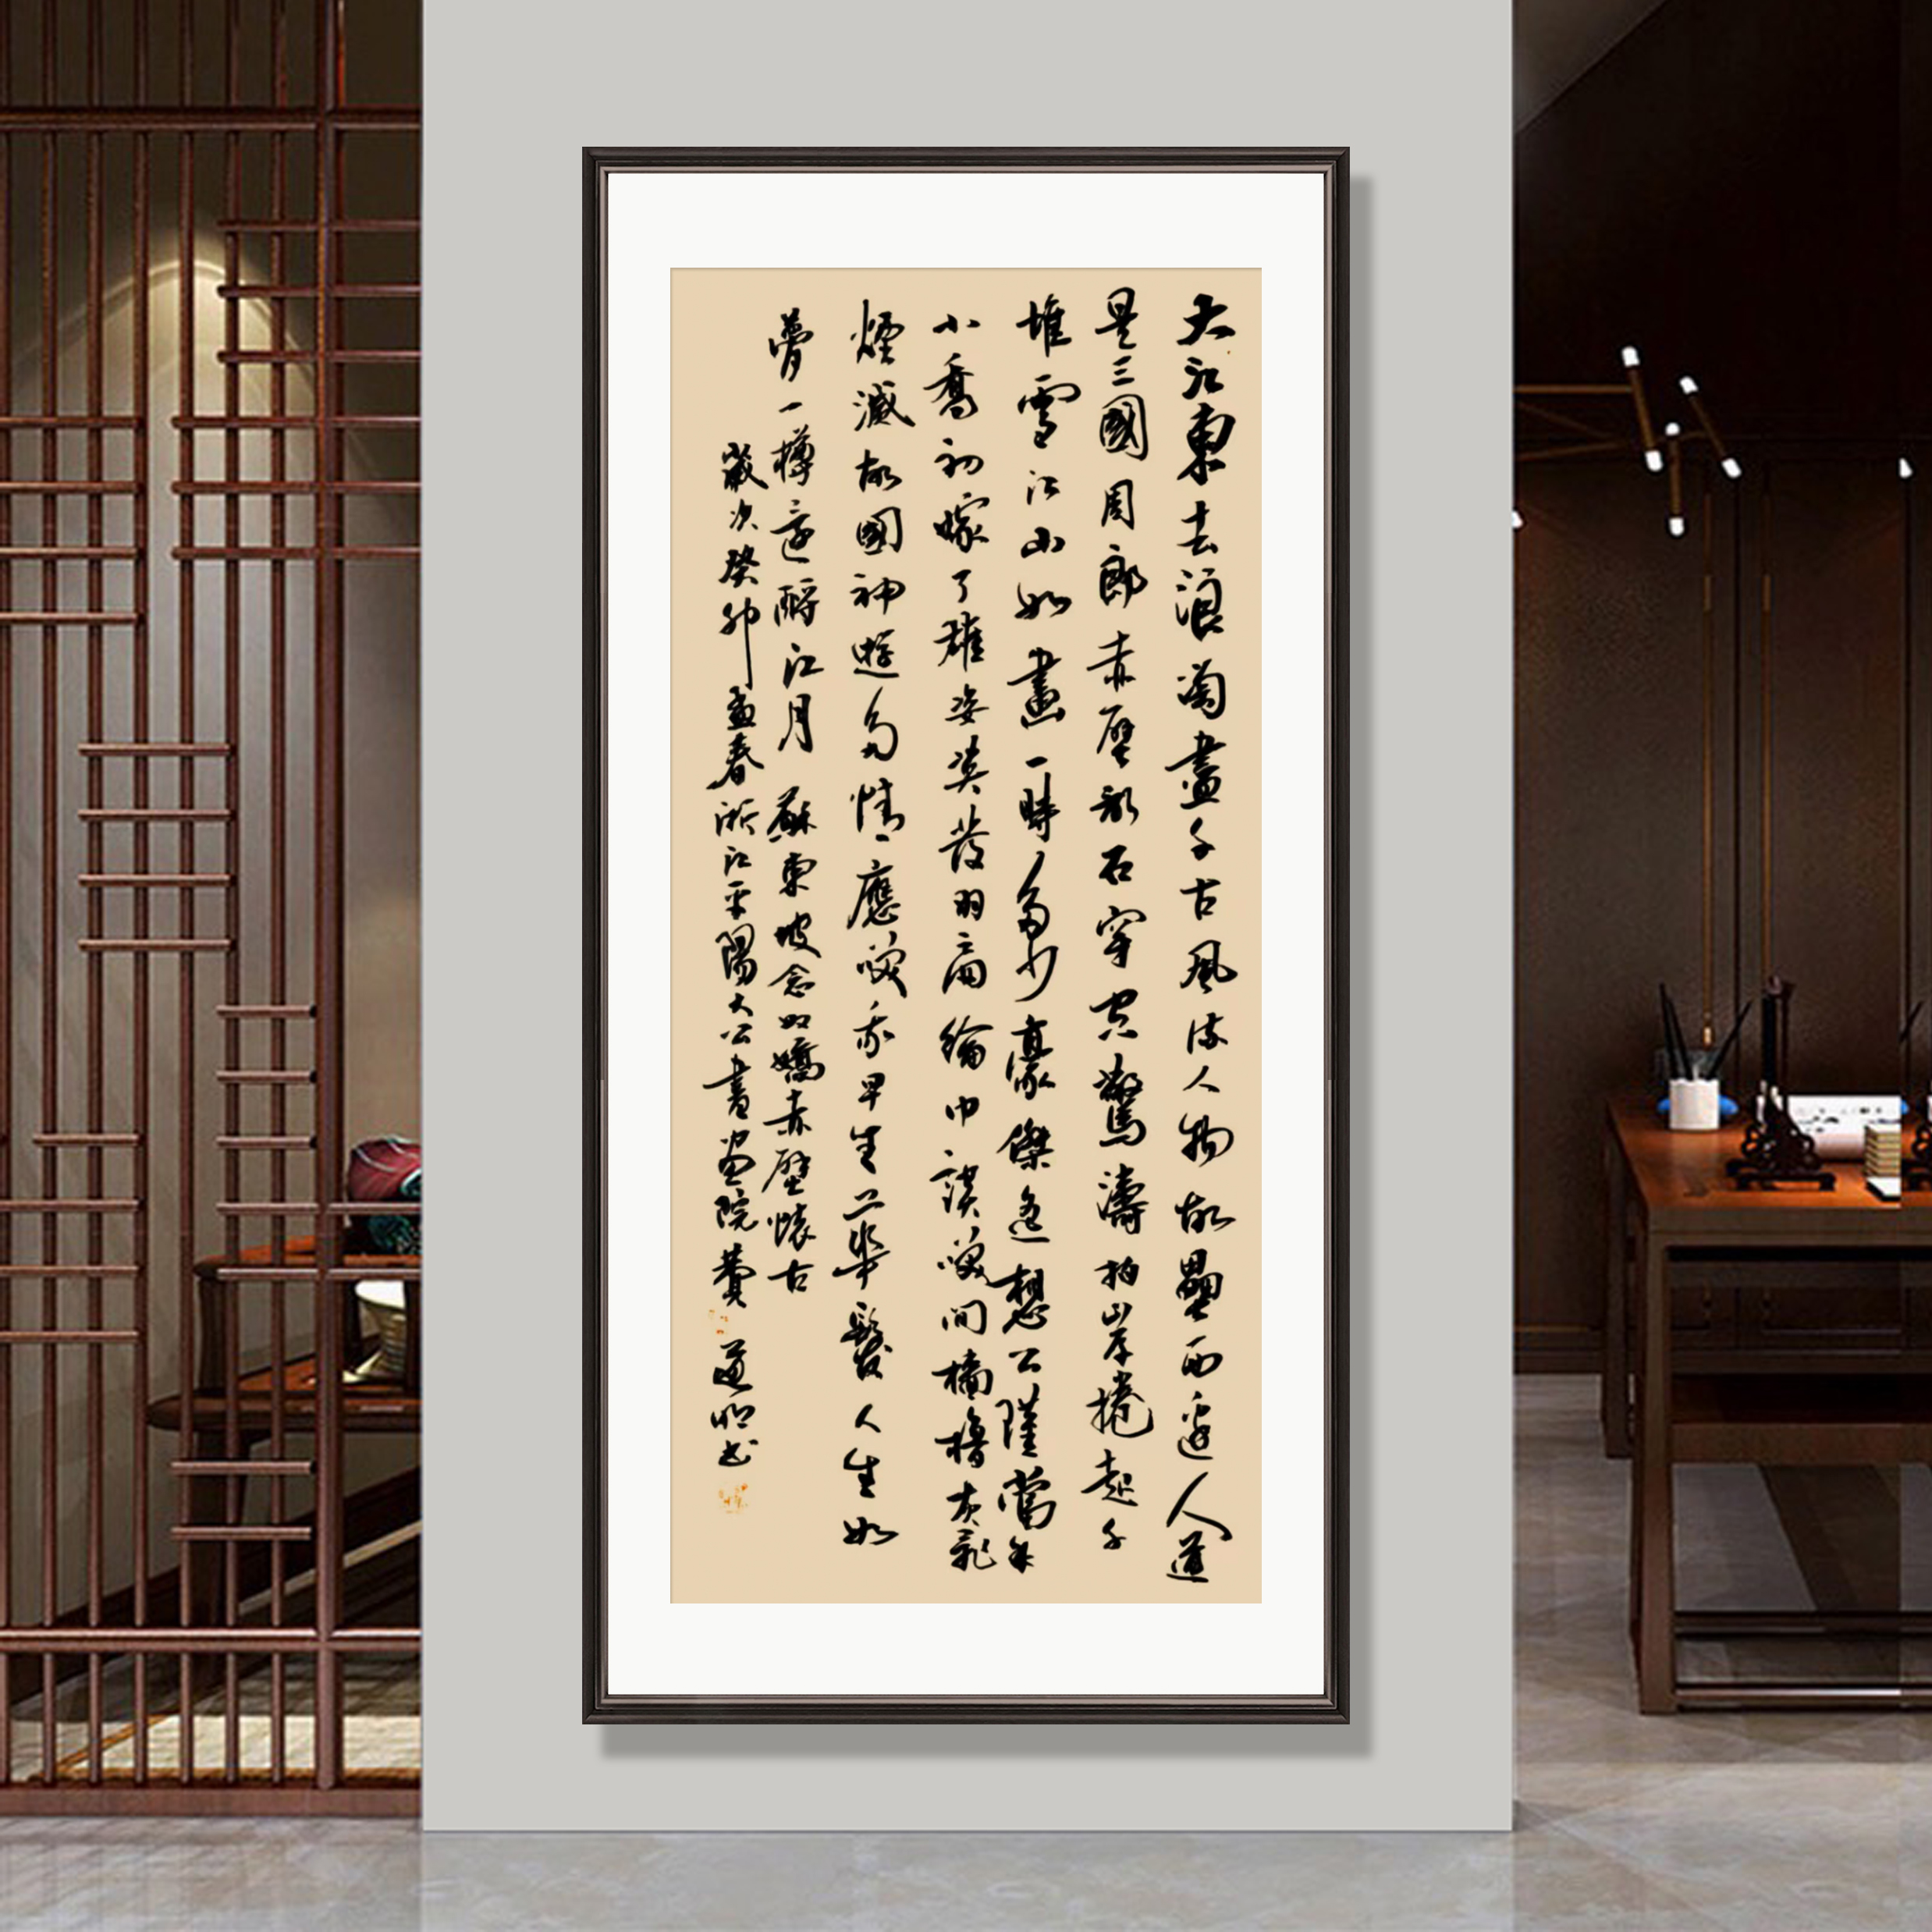 大江東去浪淘盡千古風流人物故壘西邊人道
是三國周郎赤壁亂石穿空驚濤拍岸捲起千
堆雪江山如畫一時多少豪傑遙想公瑾當年
小喬初嫁了雄姿英發羽扇綸巾談笑間檣櫓灰飛
煙滅故國神遊多情應笑我早生華髮人生如
夢一樽還酹江月 蘇東坡念奴嬌赤壁懷古
歲次癸卯孟春浙江平陽大公書畫院黃道明書